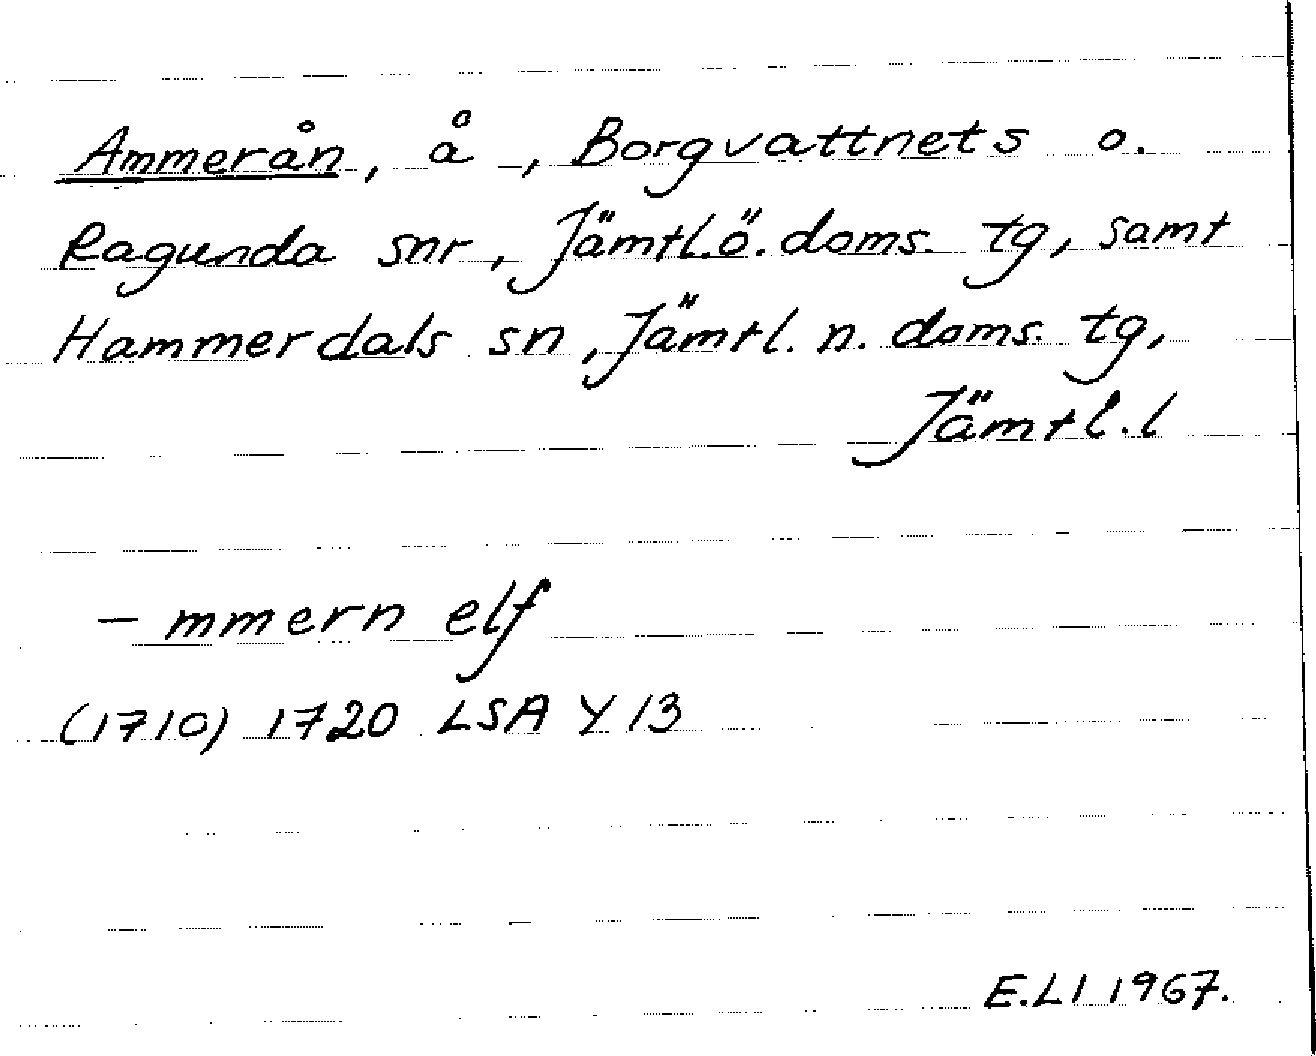 Ammerån, å, Borgvattnets o.
Ragunda snr, Jämtl.ö.doms. tg, samt
Hammerdals sn, Jämtl. n. doms. tg,
Jämtl.l
- mmern elf
(1710) 1720 LSA Y 13
E.LI 1967.